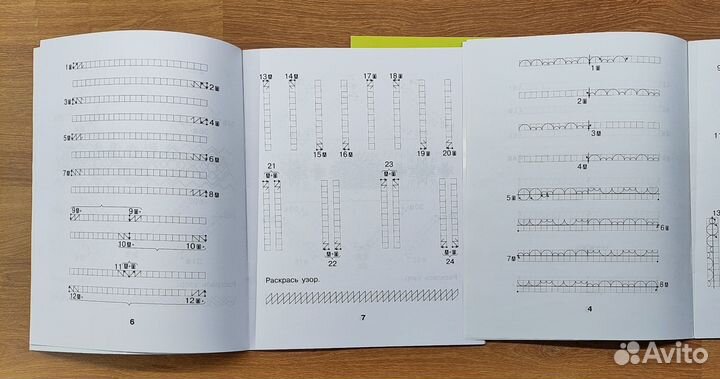 1
2
3
4
5
6
7
8
9
9
10
10
11
12
12
6
13
14
17
18
15
16
19
20
21
23
22
24
Раскрась узор.
7
1
2
3
4
5
6
7
8
4
13
Avito